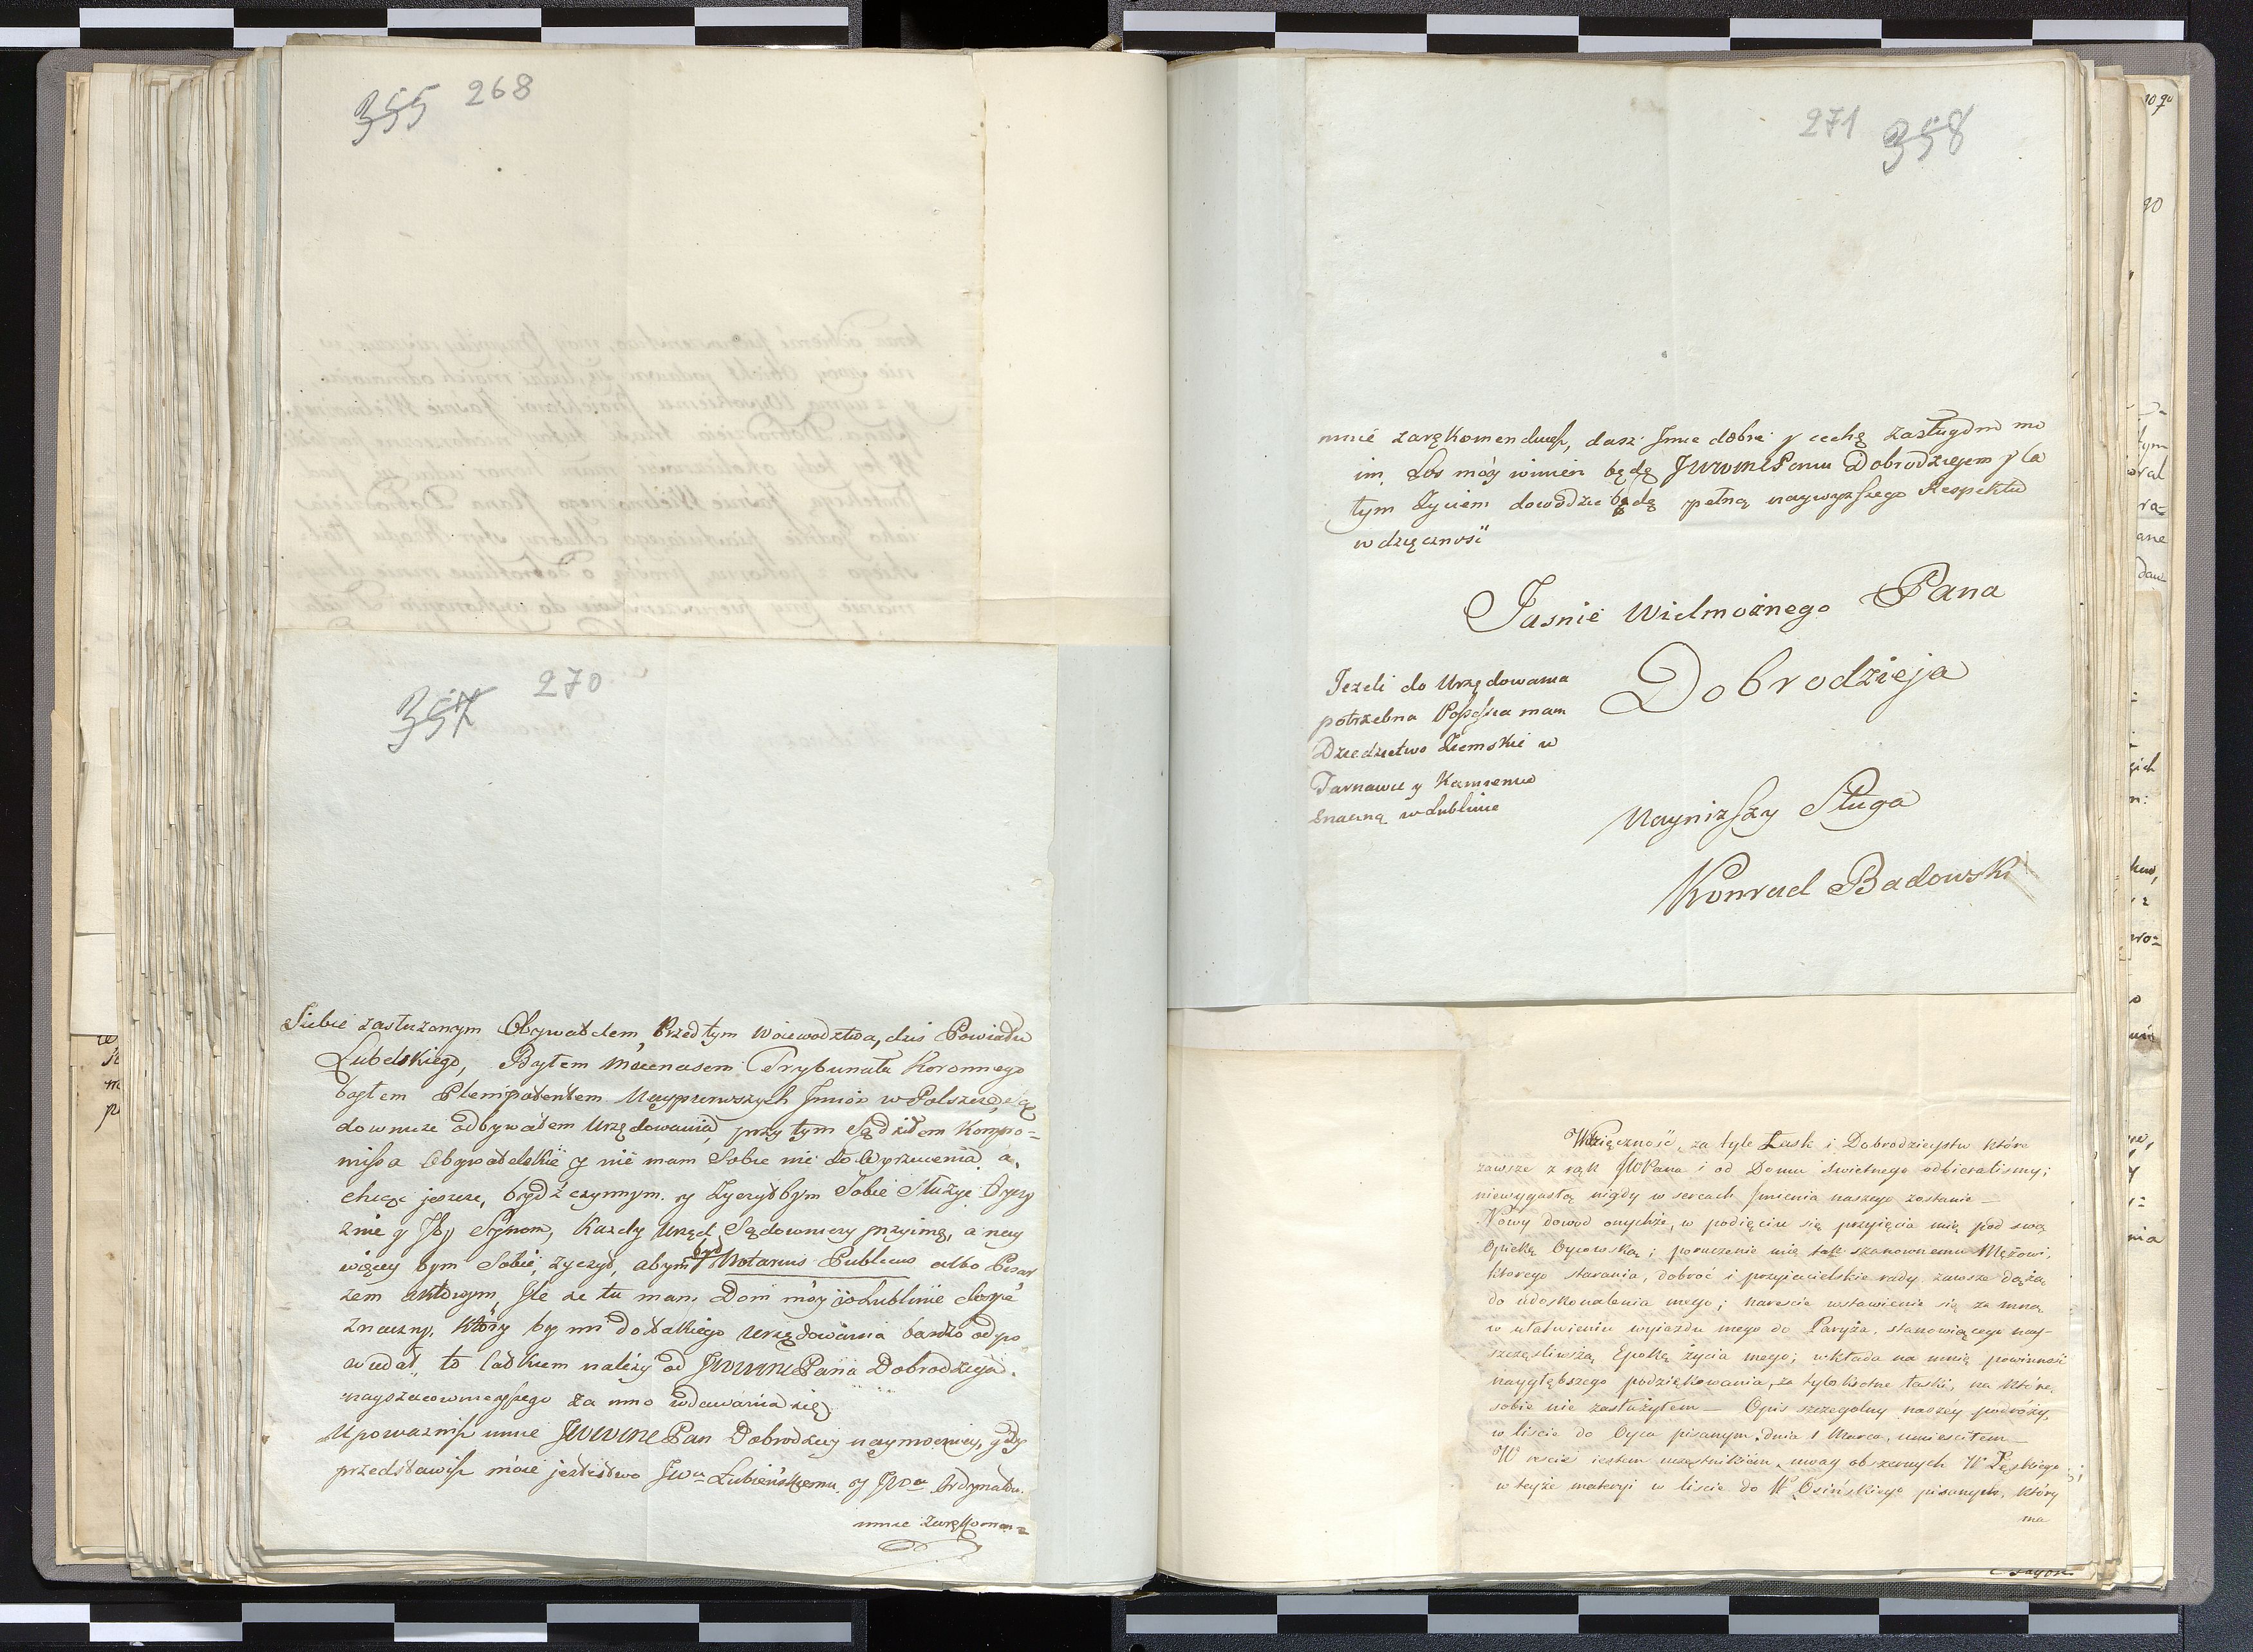 355 268
357 270
Siebie zasłużonym Obywatelem, Przed tym Woiewodztwa, dziś Powiatu
Lubelskiego, Byłem Mecenasem Trybunału Koronnego
byłem Plenipotentem Naypierwszych Imion w Polszcze, Są
downicze odbywałem Urzędowania, przy tym Sądziłem Kompro=
missa Obywatelskie y nie mam Sobie nic do Wyrzucenia a,
chcąc jeszcze, bydź czynnym. y Zyczyłbym Sobie Służyć Oyczy
znie y Jey Synom, Kazdy Urząd Sądowniczy przyimę, a nay
więcey bym Sobie, zyczył, abym był Notarius Publicus albo Pisar
zem aktowym, Ile że tu mam Dom móy w Lublinie dosyć
Znaczny, Który by mi do takiego Urzędowania bardzo odpo
wiedał, to całkiem należy od JWWMPana Dobrodzieja.
nayszacownieyszego za mno wdawania się,
Upoważnisz mnie JWWMPan Dobrodziey naymocniey, gdy
przedstawisz moie jestestwo JWu Łubieńskiemu. y JWu Ordynatu.
mnie zarękomen=
271 358
mnie zarękomenduiesz, dasz Imie dobre y cechę zasługom mo
im, Los móy winien będę JWWMPanu Dobrodziejem y ca
tym Zyciem dowodzić będę pełną naywyzszego Respektu
wdzięczność
Jasnie Wielmożnego Pana
Dobrodzieja
Jezeli do Urzędowania
potrzebna Possessia mam
Dziedzictwo Ziemskie w
Tarnawce y Kamienice
Znaczną w Lublinie
Nayniższy Sługa
Konrad Badowski
Wdzięczność, za tyle Łask i Dobrodzieystw które
zawsze z rąk JWPana i od Domu świetnego odbieraliśmy;
niewygasłą nigdy w sercach Imienia naszego zostanie —
Nowy dowod onychże, w podięciu się przyięcia mię pod swą
Opiekę Oycowską; poruczenie mię tak szanownemu Mężowi,
ktorego starania, dobroć i przyiacielskie rady zawsze dążą
do udoskonalenia mego; nareście wstawienie się za mną
w ułatwieniu wyiazdu mego do Paryża, stanowiącego nay-
szczęśliwszą Epokę życia mego; wkłada na mnię powinność
naygłębszego podziękowania, za tylokrotne łaski, na które,
sobie nie zasłużyłem — Opis szczegolny naszey podroży,
w liście do Oyca pisanym, dnia 1 Marca, umieściłem
W reście iestem uczestnikiem, uwag obszernych W Pęskiego
w teyże materyi w liście do W Osińskiego pisanych, który
ma